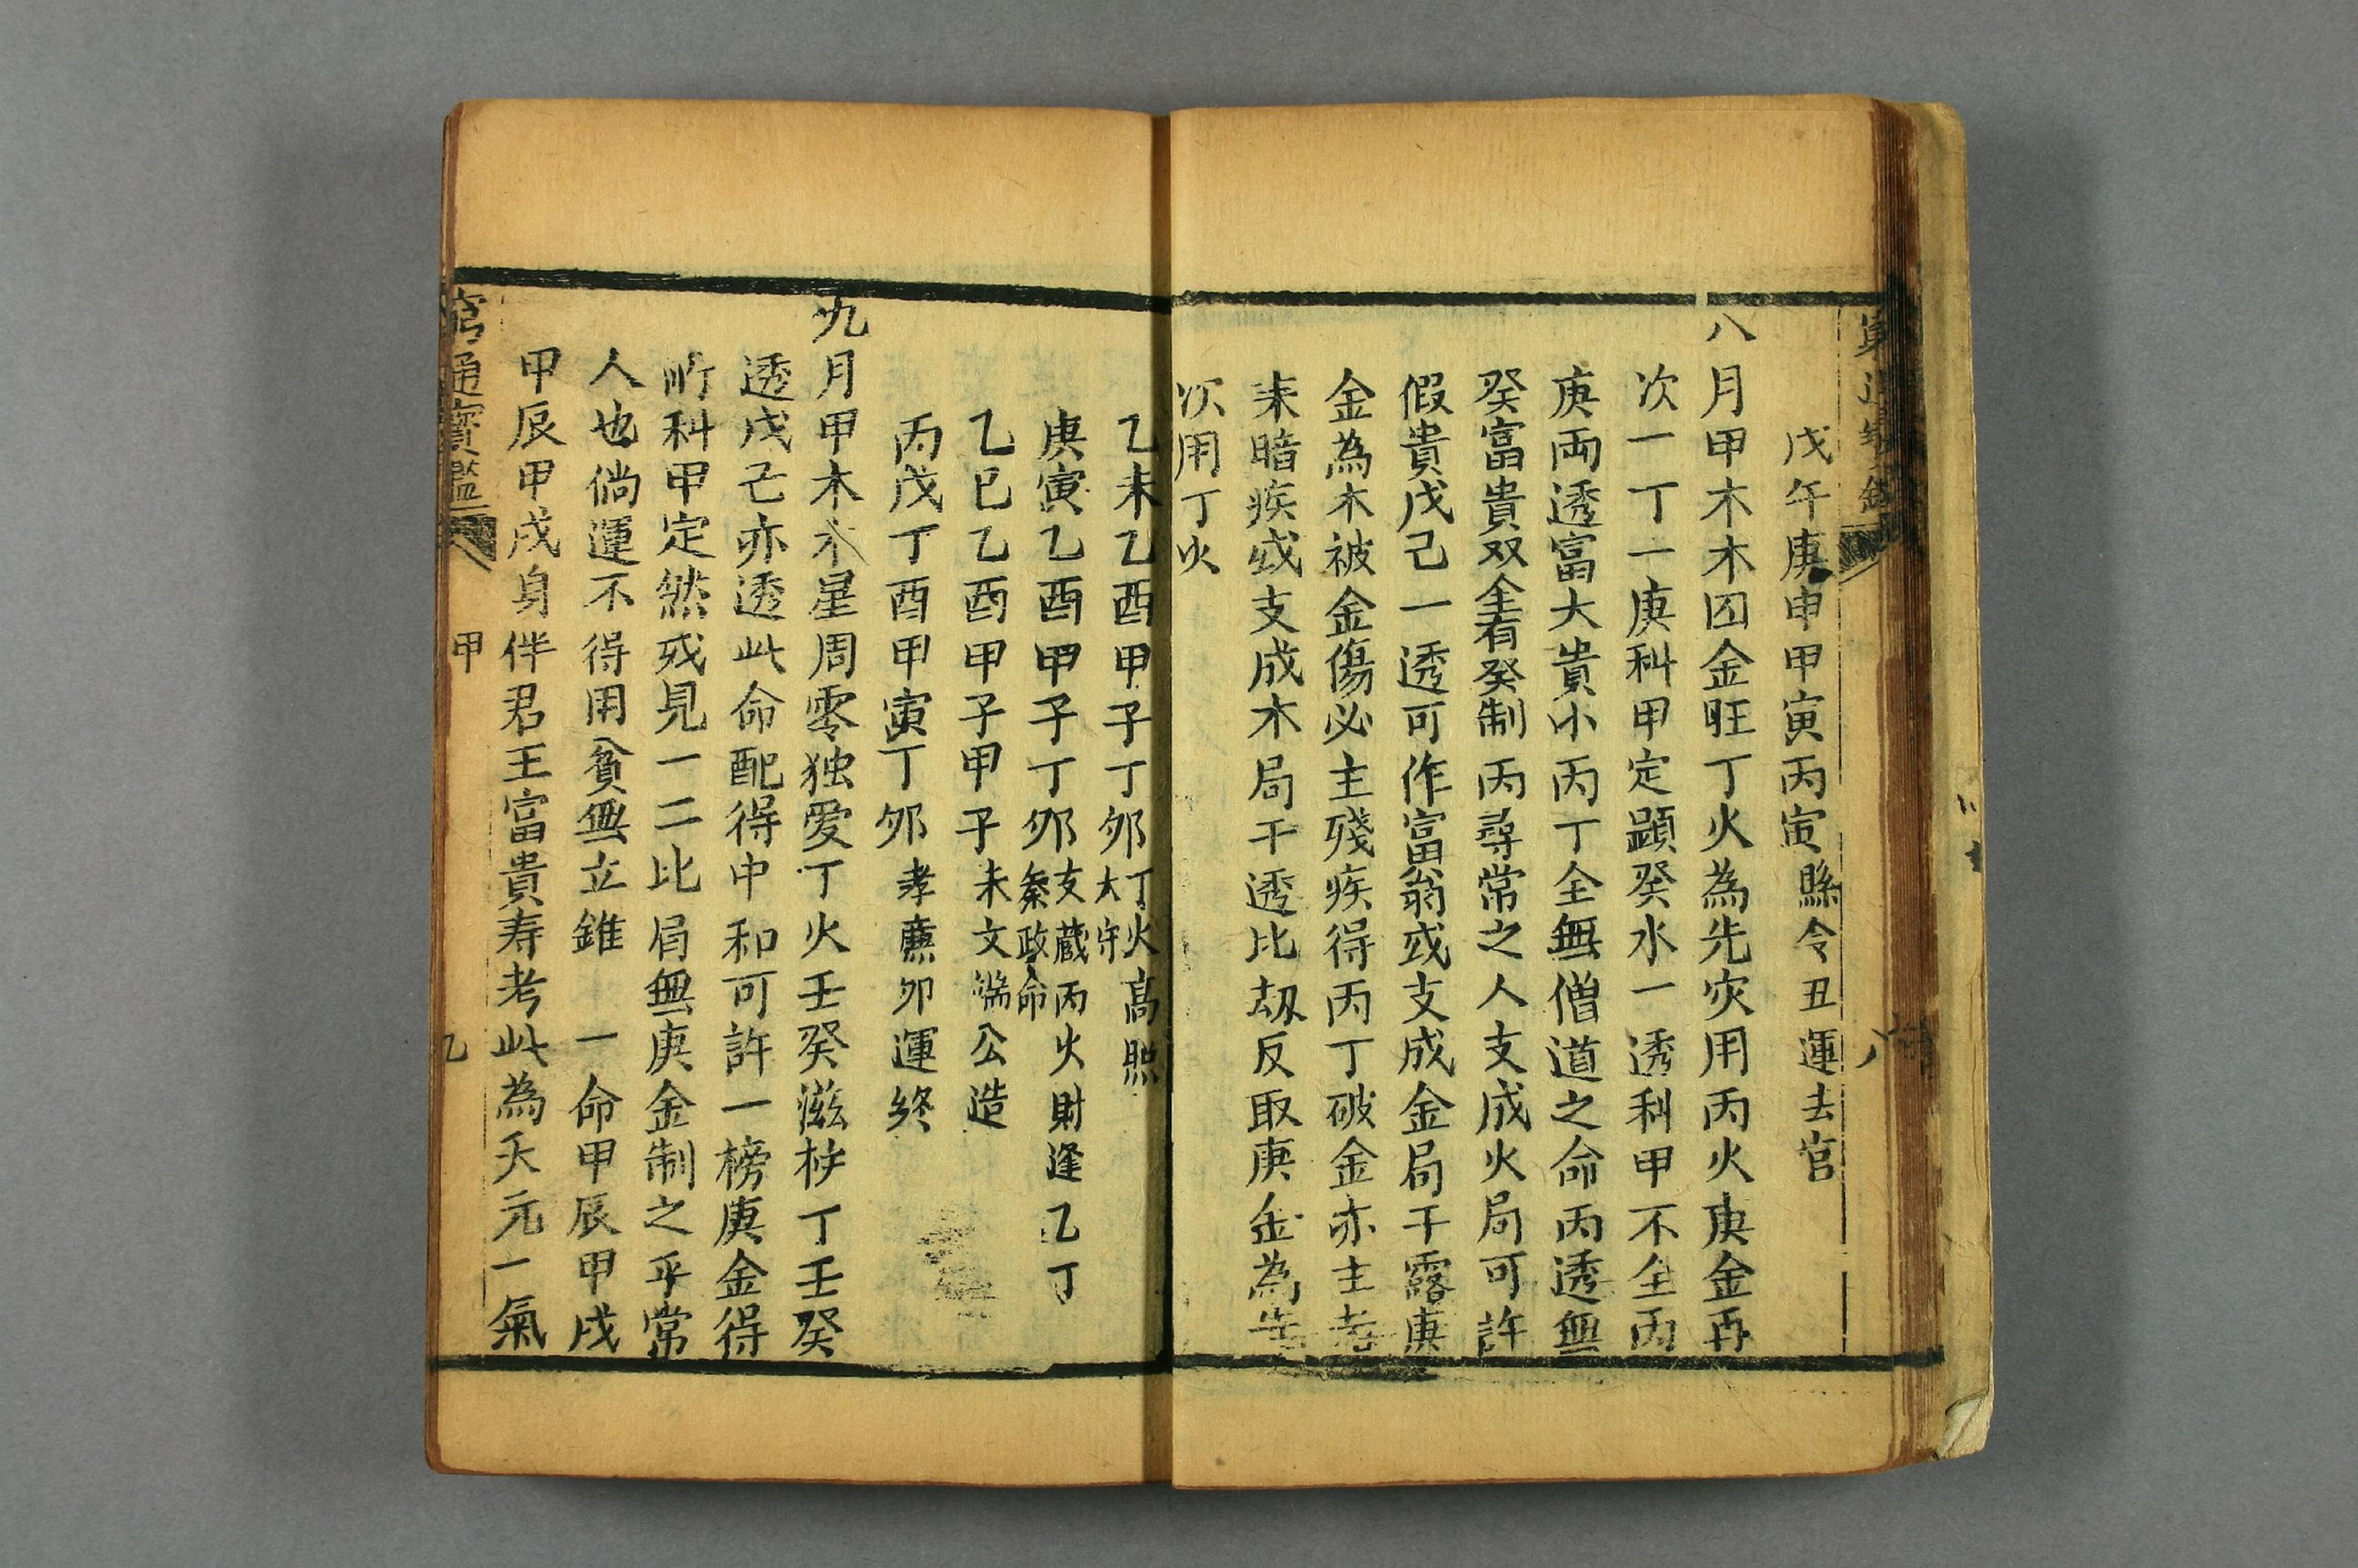 戊午庚申甲寅丙寅縣令丑運去官
八月甲木木囚金旺丁火為先次用丙火庚金再
次一丁一庚科甲定顕癸水一透科甲不全丙
庚両透富大貴小丙丁全無僧道之命丙透無
癸富貴双全有癸制丙尋常之人支成火局可許
假貴戊己一透可作富翁或支成金局干露庚
金為木被金傷必主殘疾得丙丁破金亦主老
来暗疾或支成木局干透比刼反取庚金為先
次用丁火
乙未乙酉甲子丁卯丁火高照太守
庚寅乙酉甲子丁卯支藏丙火財逢乙丁秦政命
乙巳乙酉甲子甲子未文端公造
丙戊丁酉甲寅丁卯孝廉卯運終
九月甲木木星周零独爱丁火壬癸滋扶丁壬癸
透戊己亦透此命配得中和可許一榜庚金得
所科甲定然或見一二比肩無庚金制之平常
人也倘運不得用貧無立錐一命甲辰甲戌
甲辰甲戌身伴君王富貴寿考此為天元一氣
窮通寳鑑
甲
乙